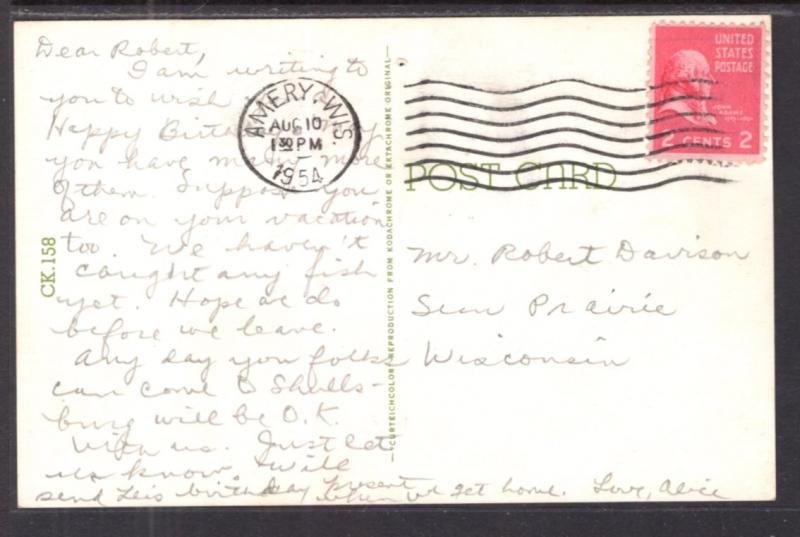 Dear Robert,
I am writing to
you to wish
Happy Birthday
you have many more
of them. Suppose you
are on your vacation
too. We haven't
caught any fish
yet. Hope we do
before we leave.
Any day you folks
can come to Shulls-
burg will be O.K.
with us. Just let
us know. I will
send his birthday present when we get home. Love, Alice
CK.158
CURTEICHCOLOR REPRODUCTION FROM KODACHROME OR EKTACHROME ORIGINAL
AMERY, WIS.
AUG 10
1 30 PM
1954
UNITED
STATES
POSTAGE
JOHN
ADAMS
2 CENTS 2
POST CARD
Mr. Robert Davison
Seun Prairie
Wisconsin